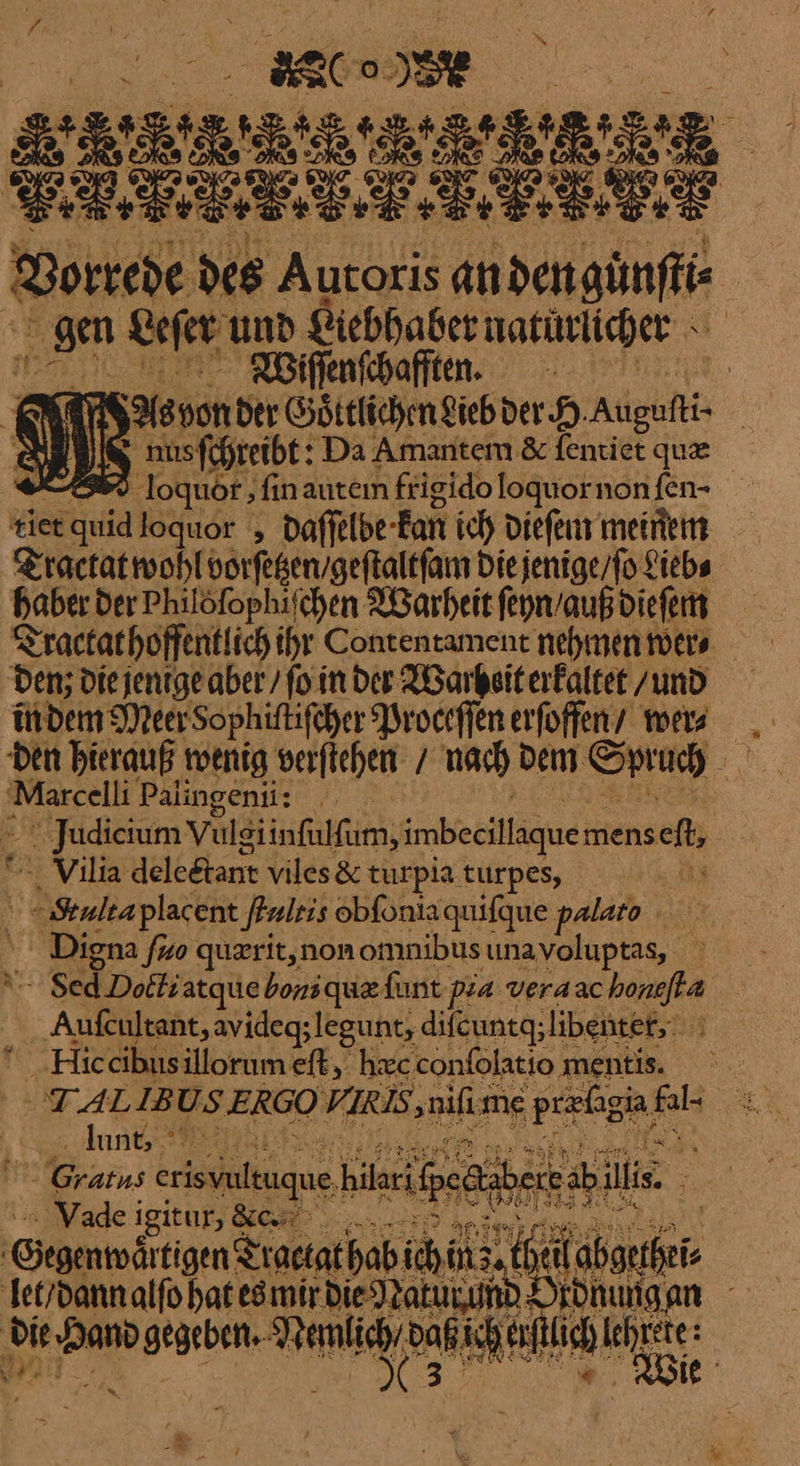 ( o )
Vorrede des Autoris an den günſti⸗
gen Leſer und Liebhaber natürlicher
Wiſſenſchafften.
WAs von der Göttlichen Lieb der H. Auguſti-
nus ſchreibt: Da Amantem & ſentiet quæ
loquor, ſin autem frigido loquor non ſen-
tiet quid loquor , daſſelbe kan ich dieſem meinem
Tractat wohl vorſetzen/geſtaltſam die jenige/ſo Lieb⸗
haber der Philoſophiſchen Warheit ſeyn/auß dieſem
Tractat hoffentlich ihr Contentament nehmen wer⸗
den; die jenige aber / ſo in der Warheit erkaltet / und
in dem Meer Sophiſtiſcher Proceſſen erſoffen / wer⸗
den hierauß wenig verſtehen / nach dem Spruch
Marcelli Palingenii:
Judicium Vulgi inſulſum, imbecillaque mens eſt,
Vilia delectant viles & turpia turpes,
Stulta placent ſtultis obſonia quiſque palato
Digna ſuo quærit, non omnibus una voluptas,
Sed Docti atque boni quæ ſunt pia vera ac honeſta
Auſcultant, avideq; legunt, diſcuntq; libenter,
Hic cibus illorum eſt, hæc conſolatio mentis.
TALIBUS ERGO VIRIS, niſi me præſagia fal-
lunt,
Gratus eris vultuque hilari ſpectabere ab illis.
Vade igitur, &c.
Gegenwårtigen Tractat hab ich in 3. theil abgethei⸗
let/dann alſo hat es mir die Natur und Ordnung an
die Hand gegeben. Nemlich/ daß ich erſtlich lehrete:
)( 3 Wie